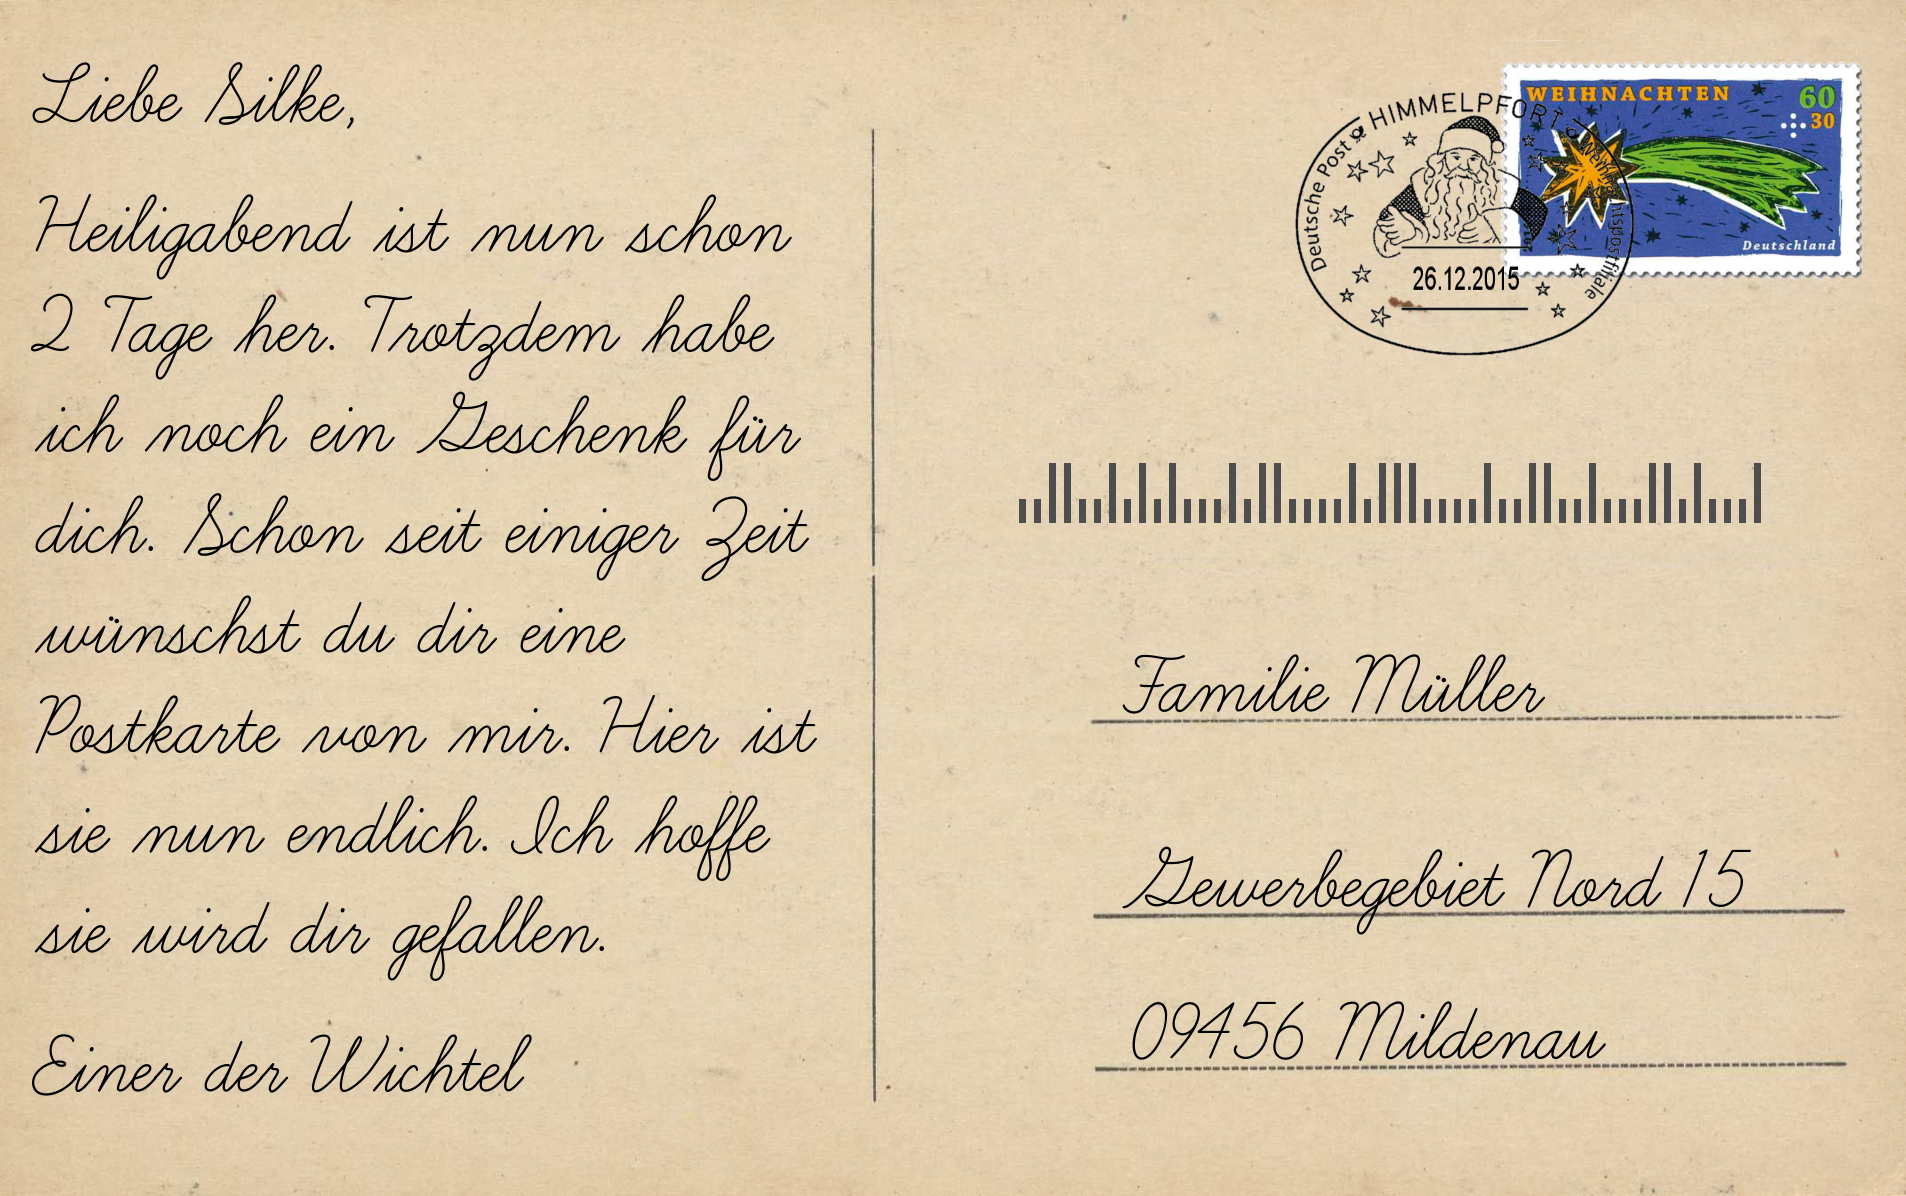 Liebe Silke,
Heiligabend ist nun schon
2 Tage her. Trotzdem habe
ich noch ein Geschenk für
dich. Schon seit einiger Zeit
wünschst du dir eine
Postkarte von mir. Hier ist
sie nun endlich. Ich hoffe
sie wird dir gefallen.
Einer der Wichtel
WEIHNACHTEN
60
30
Deutschland
HIMMELPFORT
Deutsche Post
Weihnachtspostfiliale
26.12.2015
Familie Müller
Gewerbegebiet Nord 15
09456 Mildenau